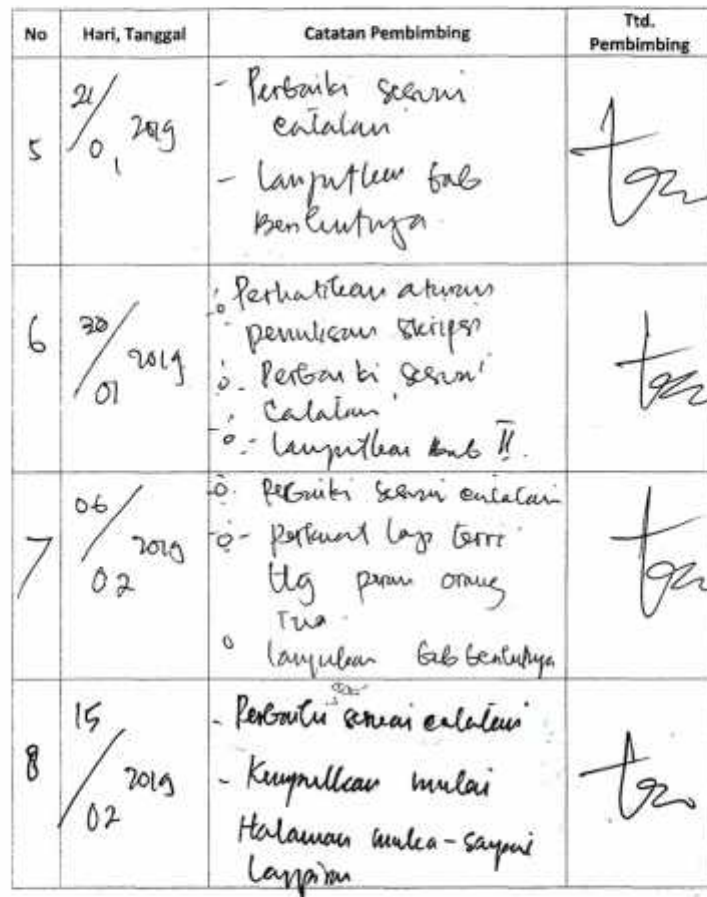 No Hari, Tanggal Catatan Pembimbing Ttd. Pembimbing
5 21/01 2019
- Perbaiki sesuai
catatan
- Lanjutkan bab
Berikutnya
6 30/01 2019
Perhatikan aturan
penulisan skripsi
- Perbaiki sesuai
catatan
- Lanjutkan Bab II.
7 06/02 2019
Perbaiki sesuai catatan
- perkuat lagi teori
ttg peran orang
Tua
lanjutkan bab berikutnya
8 15/02 2019
- Perbaiki sesuai catatan
- Kumpulkan mulai
Halaman muka - sampai
Lampiran